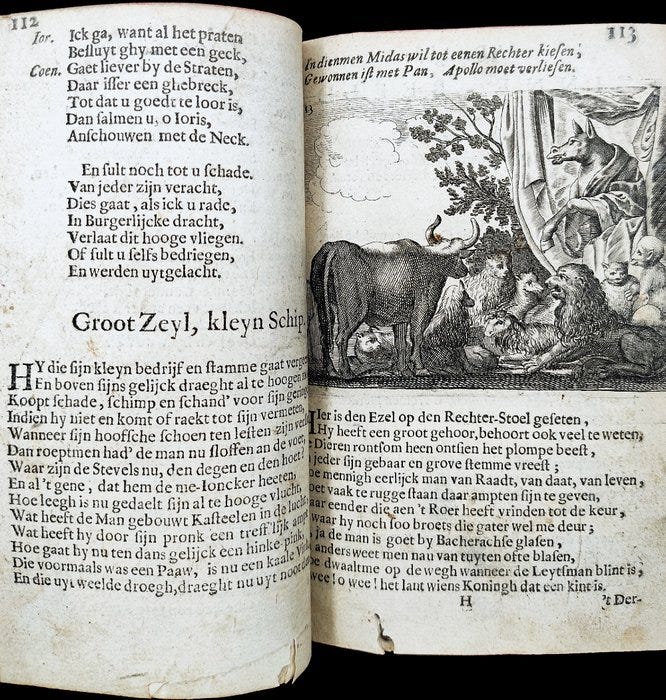 112
Ior. Ick ga, want al het praten
Besluyt ghy met een geck,
Coen. Gaet liever by de Straten,
Daar isser een ghebreck,
Tot dat u goedt te loor is,
Dan salmen u, o Ioris,
Anschouwen met de Neck.
En sult noch tot u schade.
Van jeder zijn veracht,
Dies gaat, als ick u rade,
In Burgerlijcke dracht,
Verlaat dit hooge vliegen.
Of sult u selfs bedriegen,
En werden uytgelacht.
Groot Zeyl, kleyn Schip.
HY die sijn kleyn bedrijf en stamme gaat
En boven sijns gelijck draeght al te hoogen
Koopt schade, schimp en schand' voor sijn
Indien hy niet en komt of raekt tot sijn vermeten,
Wanneer sijn hoofsche schoen ten lesten zijn
Dan roeptmen had' de man nu sloffen an de voet,
Waar zijn de Stevels nu, den degen en den hoet?
En al 't gene, dat hem de me-Ioncker heeten,
Hoe leegh is nu gedaelt sijn al te hooge vlucht,
Wat heeft de Man gebouwt Kasteelen in de lucht,
Wat heeft hy door sijn pronk een treff'lijk
Hoe gaat hy nu ten dans gelijck een hinke-pink,
Die voormaals was een Paaw, is nu een kaale
En die uyt weelde droegh, draeght nu uyt
113
Indienmen Midas wil tot eenen Rechter kiesen,
Gewonnen ist met Pan, Apollo moet verliesen.
HIer is den Ezel op den Rechter-Stoel geseten,
Hy heeft een groot gehoor, behoort ook veel te weten,
Dieren rontsom heen ontsien het plompe beest,
jeder sijn gebaar en grove stemme vreest;
mennigh eerlijck man van Raadt, van daat, van leven,
oet vaak te rugge staan daar ampten sijn te geven,
aar eender die aen 't Roer heeft vrinden tot de keur,
waar hy noch soo broets die gater wel me deur;
ja de man is goet by Bacherachse glasen,
anders weet men nau van tuyten ofte blasen,
dwaaltme op de wegh wanneer de Leytsman blint is,
wee! o wee! het lant wiens Koningh dat een kint is.
H 't Der-